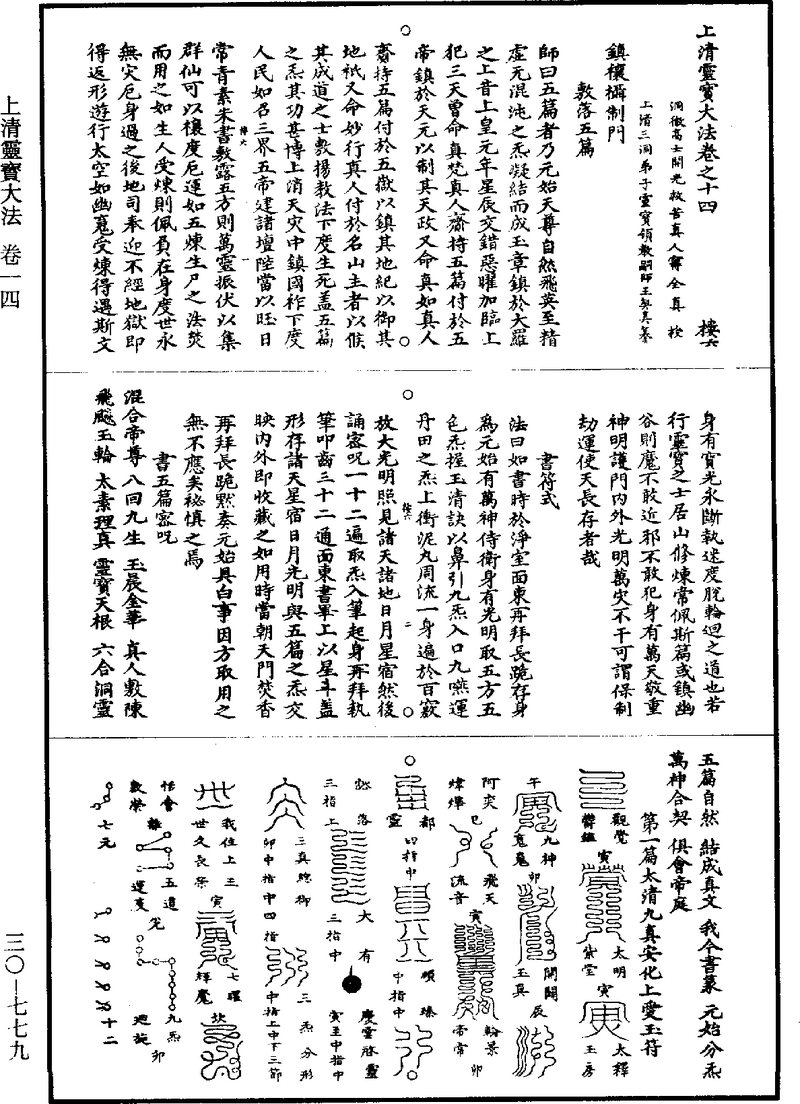 上清靈寶大法 卷一四
三〇—七七九
上清靈寶大法卷之十四 樓六
洞微高士開光救苦真人甯全真 授
上清三洞弟子靈寶領教嗣師王契真纂
鎮禳攝制門
敷落五篇
師曰五篇者乃元始天尊自然飛英至精
虛元混沌之炁凝結而成玉章鎮於大羅
之上昔上皇元年星辰交錯惡曜加臨上
犯三天曾命真梵真人齎持五篇付於五
帝鎮於天元以制其天政又命真如真人
齎持五篇付於五嶽以鎮其地紀以御其
地祇又命妙行真人付於名山主者以候
其成道之士敷揚教法下度生死蓋五篇
之炁其功甚博上消天灾中鎮國祚下度
人民如召三界五帝建諸壇陛當以旺日
常青素朱書敷露五方則萬靈振伏以集
群仙可以禳度厄運如五煉生尸之法焚
而用之如生人受煉則佩負在身度世永
無灾厄身過之後地司奉迎不經地獄即
得返形遊行太空如幽䰟受煉得遇斯文
身有寶光永斷執迷度脫輪迴之道也若
行靈寶之士居山修煉常佩斯篇或鎮幽
谷則魔不敢近邪不敢犯身有萬天敬重
神明護門內外光明萬灾不干可謂保制
劫運使天長存者哉
書符式
法曰如書時於淨室面東再拜長跪存身
為元始有萬神侍衛身有光明取五方五
色炁握玉清訣以鼻引九炁入口九嚥運
丹田之炁上衝泥丸周流一身遍於百竅
放大光明照見諸天諸地日月星宿然後
誦密呪一十二遍取炁入筆起身再拜執
筆叩齒三十二通面東書畢上以星斗蓋
形存諸天星宿日月光明與五篇之炁交
映內外即收藏之如用時當朝天門焚香
再拜長跪默奏元始具白事因方取用之
無不應矣祕慎之焉
書五篇密呪
混合帝尊 八回九生 玉晨金華 真人敷陳
飛飈玉輪 太素理真 靈寶天根 六合洞靈
五篇自然 結成真文 我今書篆 元始分炁
萬神合契 俱會帝庭
第一篇太清九真安化上愛玉符
觀覺
寅
太明
紫堂
寅
太釋
玉房
午
九神
卯
開闢
玉真
辰
阿奕
巳
飛天
流音
寅
卯
都
靈
四指中
中指中
落
三指上
大有
三指中
慶雲啓靈
寅至中指中
三真總御
卯中指中四指
三炁分形
中指上中下三節
我位上王
世久長存
寅
七曜
輝魔
五道
九炁
卯
七元
十二